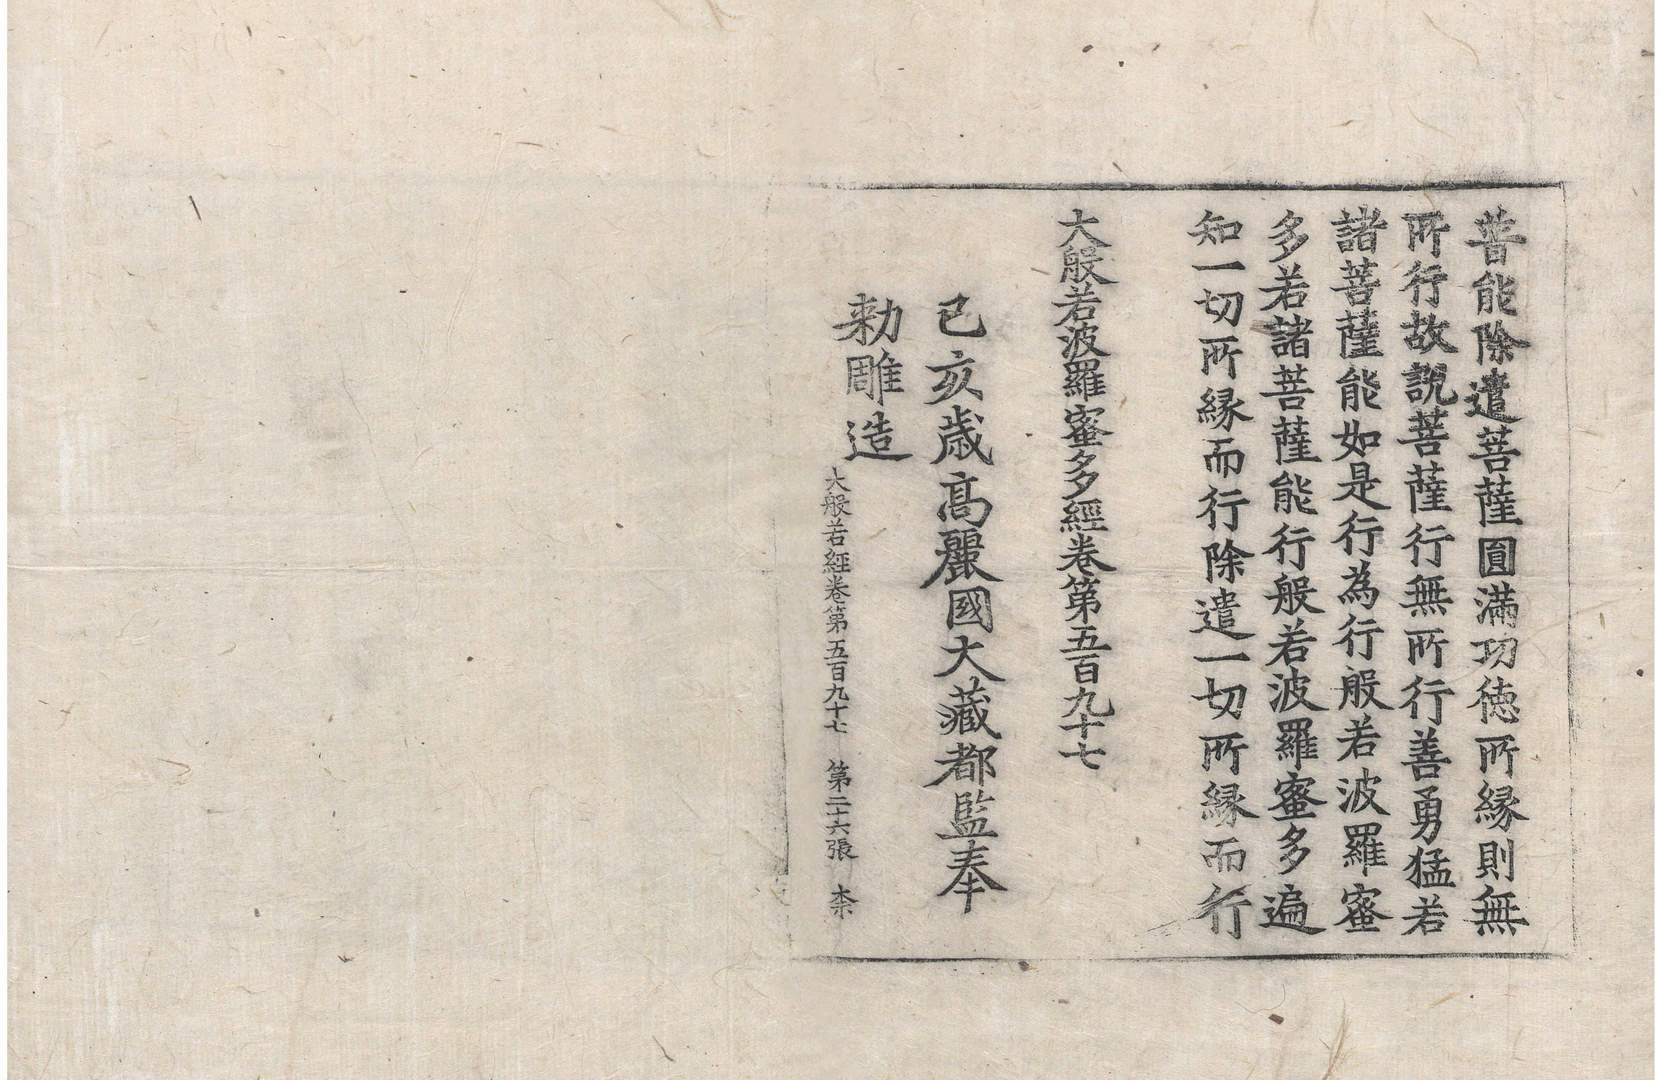 普能除遣菩薩圓滿功德所緣則無
所行故說菩薩行無所行善勇猛若
諸菩薩能如是行為行般若波羅蜜
多若諸菩薩能行般若波羅蜜多遍
知一切所緣而行除遣一切所緣而行
大般若波羅蜜多經卷第五百九十七
己亥歲高麗國大藏都監奉
勅雕造
大般若經卷第五百九十七 第二十六張